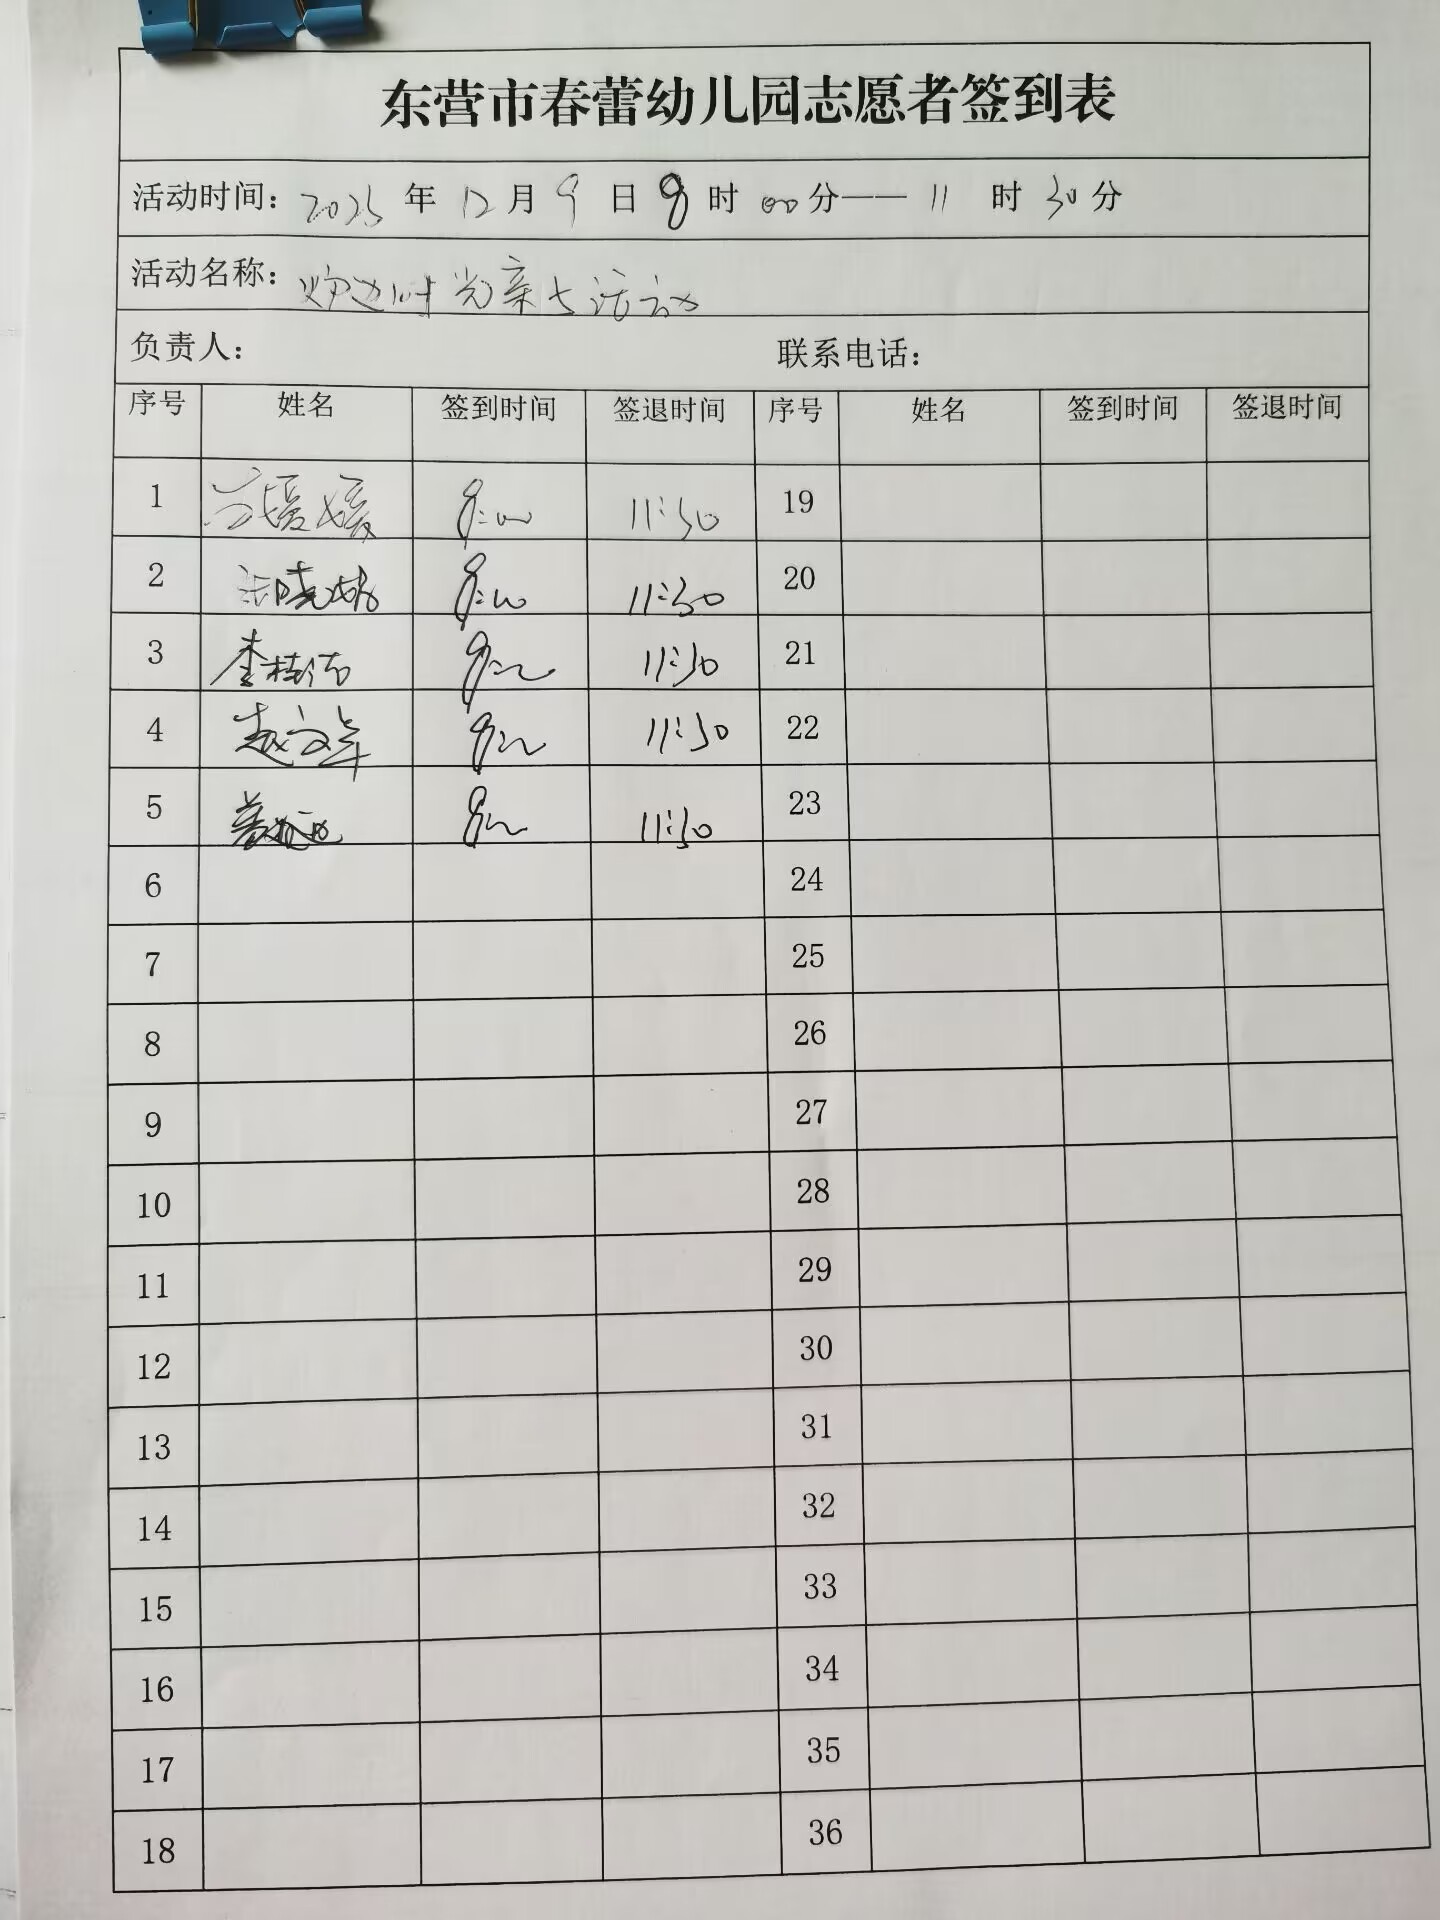 东营市春蕾幼儿园志愿者签到表
活动时间：2025 年 12 月 9 日 8 时 00 分—— 11 时 30 分
活动名称：炉边时光亲子活动
负责人： 联系电话：
序号 姓名 签到时间 签退时间 序号 姓名 签到时间 签退时间
1 媛媛 8:00 11:30 19
2 晓 8:00 11:30 20
3 李桂 8:00 11:30 21
4 赵文 8:00 11:30 22
5 8:00 11:30 23
6 24
7 25
8 26
9 27
10 28
11 29
12 30
13 31
14 32
15 33
16 34
17 35
18 36